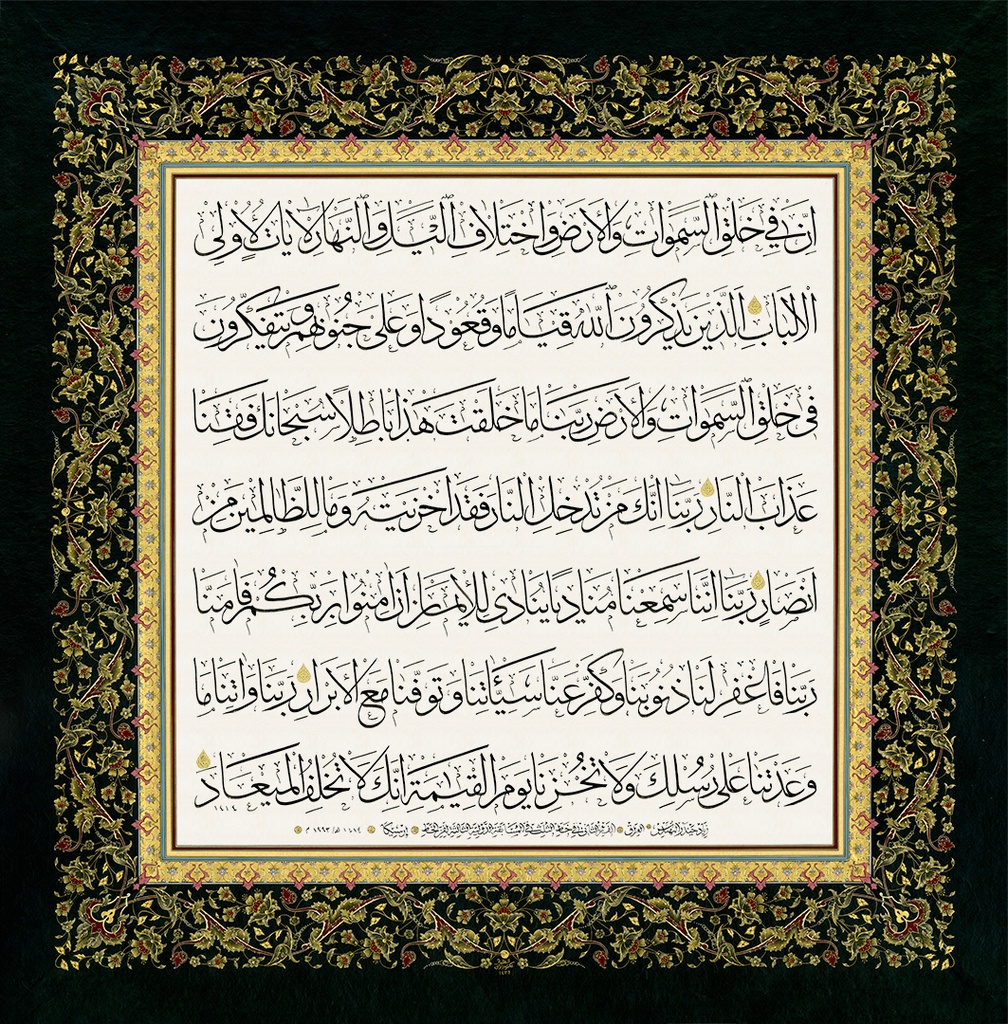 اِنَّ فِي خَلْقِ السَّمٰوَاتِ وَالْاَرْضِ وَاخْتِلَافِ الَّيْلِ وَالنَّهَارِ لَاٰيَاتٍ لِاُولِي
الْاَلْبَابِ اَلَّذِينَ يَذْكُرُونَ اللّٰهَ قِيَامًا وَقُعُودًا وَعَلٰى جُنُوبِهِمْ وَيَتَفَكَّرُونَ
فِي خَلْقِ السَّمٰوَاتِ وَالْاَرْضِ رَبَّنَا مَا خَلَقْتَ هٰذَا بَاطِلًا سُبْحَانَكَ فَقِنَا
عَذَابَ النَّارِ رَبَّنَا اِنَّكَ مَنْ تُدْخِلِ النَّارَ فَقَدْ اَخْزَيْتَهُ وَمَا لِلظَّالِمِينَ مِنْ
اَنْصَارٍ رَبَّنَا اِنَّنَا سَمِعْنَا مُنَادِيًا يُنَادِي لِلْاِيمَانِ اَنْ اٰمِنُوا بِرَبِّكُمْ فَاٰمَنَّا
رَبَّنَا فَاغْفِرْ لَنَا ذُنُوبَنَا وَكَفِّرْ عَنَّا سَيِّـَٔاتِنَا وَتَوَفَّنَا مَعَ الْاَبْرَارِ رَبَّنَا وَاٰتِنَا مَا
وَعَدْتَنَا عَلٰى رُسُلِكَ وَلَا تُخْزِنَا يَوْمَ الْقِيٰمَةِ اِنَّكَ لَا تُخْلِفُ الْمِيعَادَ
١٤١٤
العراق ارسيكا ١٤١٤ هـ/١٩٩٣ م